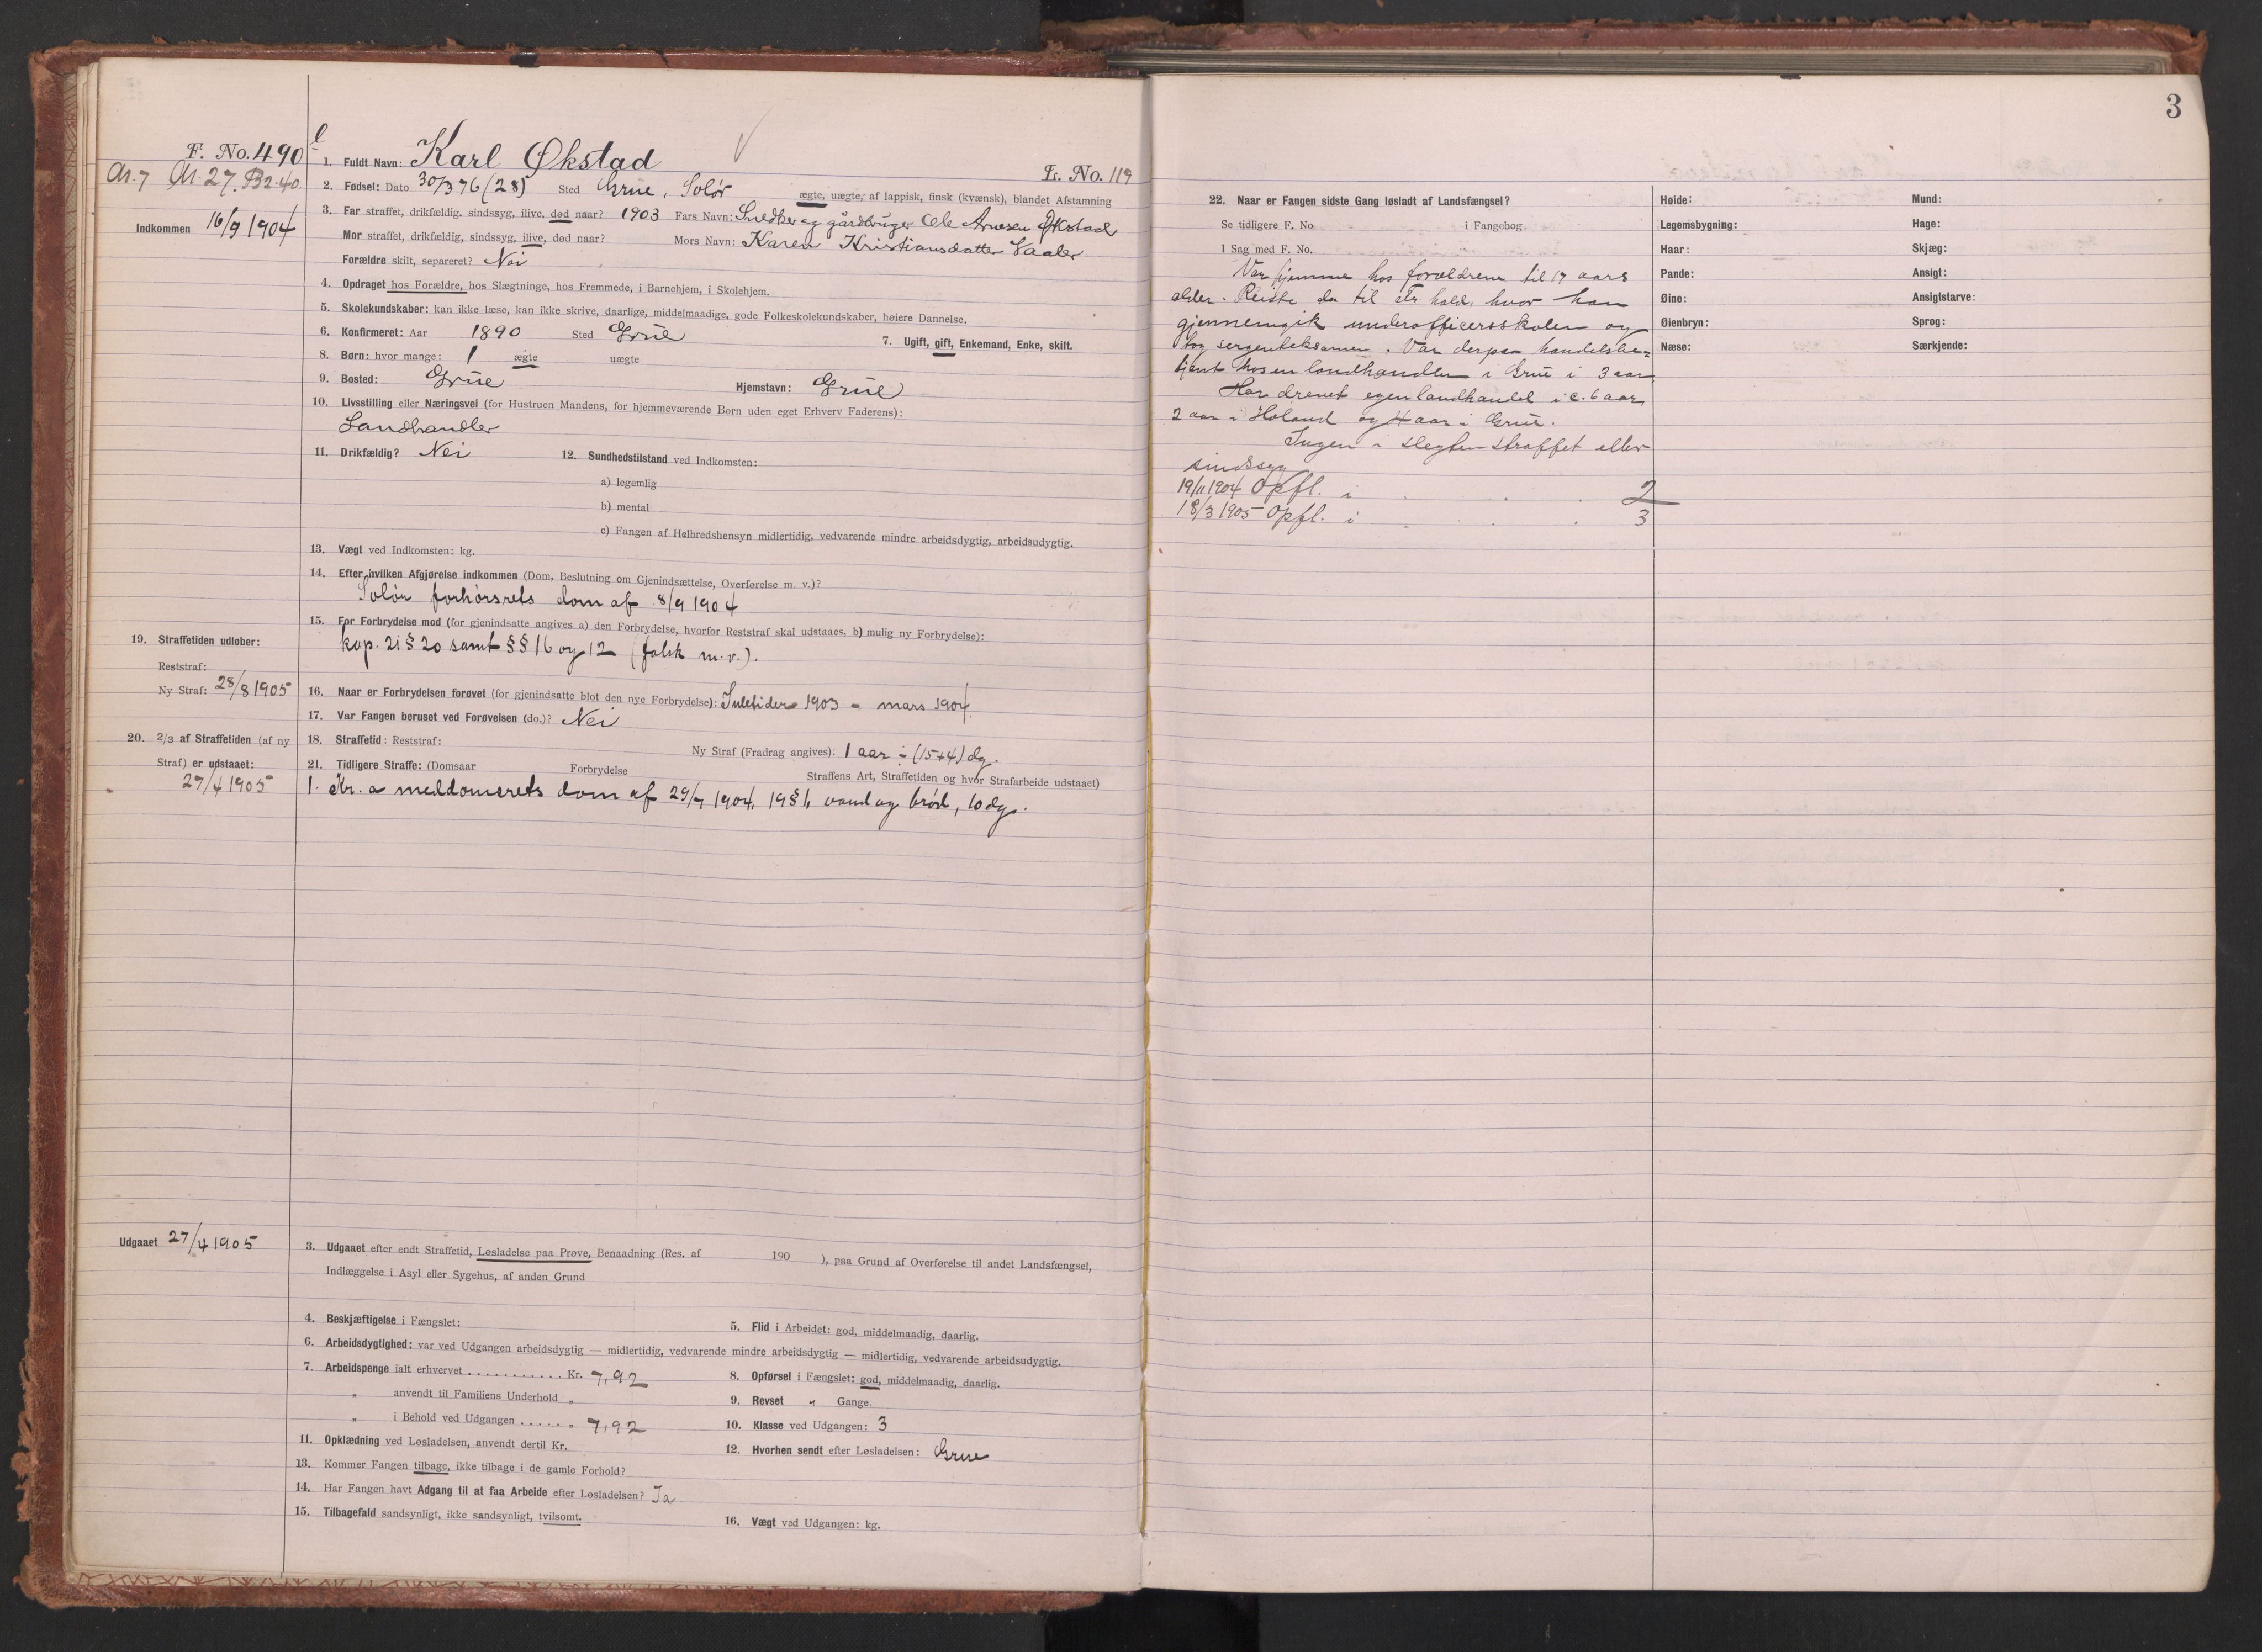 3
F. No. 490
Ar. 7 Ar. 27. B2.40.
Indkommen 16/9 1904
1. Fuldt Navn: Karl Økstad
L. No. 119
2. Fødsel: Dato 30/3 76 (28) Sted Grue, Solør ægte, uægte, af lappisk, finsk (kvænsk), blandet Afstamning
3. Far straffet, drikfældig, sindssyg, ilive, død naar? 1903 Fars Navn: Snedker og gårdbruger Ole Arnesen Økstad
Mor straffet, drikfældig, sindssyg, ilive, død naar? Mors Navn: Karen Kristiansdatter Vaaler
Forældre skilt, separeret? Nei
4. Opdraget hos Forældre, hos Slægtninge, hos Fremmede, i Barnehjem, i Skolehjem.
5. Skolekundskaber: kan ikke læse, kan ikke skrive, daarlige, middelmaadige, gode Folkeskolekundskaber, høiere Dannelse.
6. Konfirmeret: Aar 1890 Sted Grue
7. Ugift, gift, Enkemand, Enke, skilt.
8. Børn: hvor mange: 1 ægte uægte
9. Bosted: Grue Hjemstavn: Grue
10. Livsstilling eller Næringsvei (for Hustruen Mandens, for hjemmeværende Børn uden eget Erhverv Faderens):
Landhandler
11. Drikfældig? Nei 12. Sundhedstilstand ved Indkomsten:
a) legemlig
b) mental
c) Fangen af Helbredshensyn midlertidig, vedvarende mindre arbeidsdygtig, arbeidsudygtig.
13. Vægt ved Indkomsten: kg.
14. Efter hvilken Afgjørelse indkommen (Dom, Beslutning om Gjenindsættelse, Overførelse m. v.)?
Solør forhørsrets dom af 8/9 1904
15. For Forbrydelse mod (for gjenindsatte angives a) den Forbrydelse, hvorfor Reststraf skal udstaaes, b) mulig ny Forbrydelse):
kap. 21 § 20 samt §§ 16 og 12 (falsk m.v.).
19. Straffetiden udløber:
Reststraf:
Ny Straf: 28/8 1905
16. Naar er Forbrydelsen forøvet (for gjenindsatte blot den nye Forbrydelse): Juletider 1903 - mars 1904.
17. Var Fangen beruset ved Forøvelsen (do.)? Nei
20. 2/3 af Straffetiden (af ny
Straf) er udstaaet:
27/4 1905
18. Straffetid: Reststraf: Ny Straf (Fradrag angives): 1 aar ÷ (15+4) dg.
21. Tidligere Straffe: (Domsaar Forbrydelse Straffens Art, Straffetiden og hvor Strafarbeide udstaaet)
1. Kr. a meddomsrets dom af 29/7 1904, 19 § 1, vand og brød, 10 dg.
Udgaaet 27/4 1905
3. Udgaaet efter endt Straffetid, Løsladelse paa Prøve, Benaadning (Res. af 190 ), paa Grund af Overførelse til andet Landsfængsel,
Indlæggelse i Asyl eller Sygehus, af anden Grund
4. Beskjæftigelse i Fængslet:
5. Flid i Arbeidet: god, middelmaadig, daarlig.
6. Arbeidsdygtighed: var ved Udgangen arbeidsdygtig — midlertidig, vedvarende mindre arbeidsdygtig — midlertidig, vedvarende arbeidsudygtig.
7. Arbeidspenge ialt erhvervet . . . . . . . . . . . Kr. 7,92
8. Opførsel i Fængslet: god, middelmaadig, daarlig.
„ anvendt til Familiens Underhold „
9. Revset „ Gange.
„ i Behold ved Udgangen . . . . . „ 7,92
10. Klasse ved Udgangen: 3
11. Opklædning ved Løsladelsen, anvendt dertil Kr.
12. Hvorhen sendt efter Løsladelsen: Grue
13. Kommer Fangen tilbage, ikke tilbage i de gamle Forhold?
14. Har Fangen havt Adgang til at faa Arbeide efter Løsladelsen? Ja
15. Tilbagefald sandsynligt, ikke sandsynligt, tvilsomt.
16. Vægt ved Udgangen: kg.
22. Naar er Fangen sidste Gang løsladt af Landsfængsel?
Se tidligere F. No i Fangebog
I Sag med F. No.
Var hjemme hos forældrene til 17 aars
alder. Reiste da til hvor han
gjennemgik underofficersskolen og
tog sergenteksamen. Var derpaa handelsbe=
tjent hos en landhandler i Grue i 3 aar.
Har drevet egen landhandel i c. 6 aar,
2 aar i Høland og 4 aar i Grue.
Ingen i slegten straffet eller
sindssyg
19/11 1904 Opfl. i . . . 2
18/3 1905 Opfl. i . . . 3
Høide:
Legemsbygning:
Haar:
Pande:
Øine:
Øienbryn:
Næse:
Mund:
Hage:
Skjæg:
Ansigt:
Ansigtstarve:
Sprog:
Særkjende: